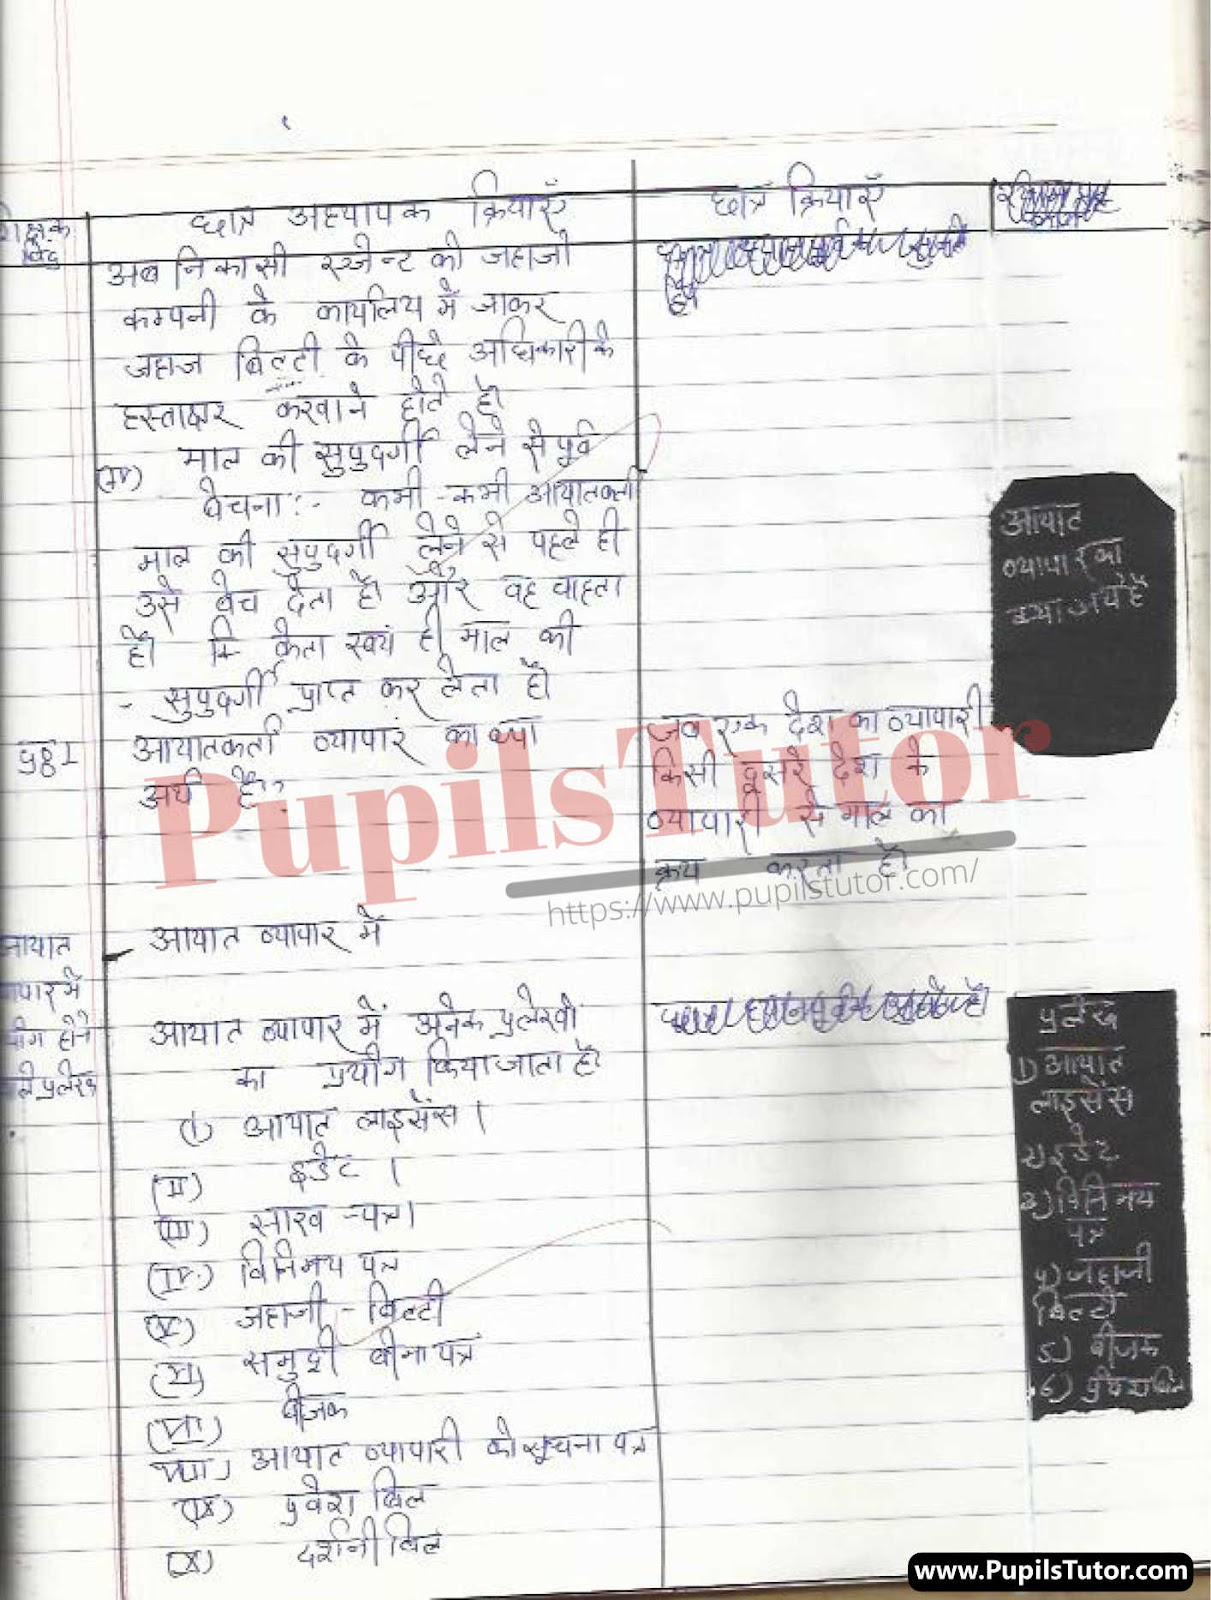 छात्र अध्यापक क्रियाएँ
छात्र क्रियाएँ
बिंदु
अब निकासी एजेन्ट को जहाजी
कम्पनी के कार्यालय में जाकर
जहाज बिल्टी के पीछे अधिकारी के
हस्ताक्षर करवाने होते है।
(IV) माल की सुपुदर्गी लेने से पूर्व
बेचना :- कभी-कभी आयातकर्ता
माल की सुपुदर्गी लेने से पहले ही
उसे बेच देता है। और वह चाहता
है। कि क्रेता स्वयं ही माल की
- सुपुदर्गी प्राप्त कर लेता है।
आयात
व्यापार का
क्या अर्थ है
प्र8I आयातकर्ता व्यापार का क्या
अर्थ है?
जब एक देश का व्यापारी
किसी दूसरे देश के
व्यापारी से माल का
क्रय करता है।
PupilsTutor
https://www.pupilstutor.com/
आयात व्यापार में
आयात
पार में
योग होने
ले प्रलेख
आयात व्यापार में अनेक प्रलेखो
का प्रयोग किया जाता है।
(I) आयात लाइसेंस।
(II) इडेट।
(III) साख-पत्र।
(IV.) विनिमय पत्र
(V) जहाजी-बिल्टी
(VI) समुद्री बीमा पत्र
(VII) बीजक
(VIII) आयात व्यापारी को सूचना पत्र
(IX) प्रवेश बिल
(X) दर्शनी बिल
प्रलेख
1) आयात
लाइसेंस
2) इडेट
3) विनिमय
पत्र
4) जहाजी
बिल्टी
5) बीजक
6) प्रवेश बिल
www.PupilsTutor.com